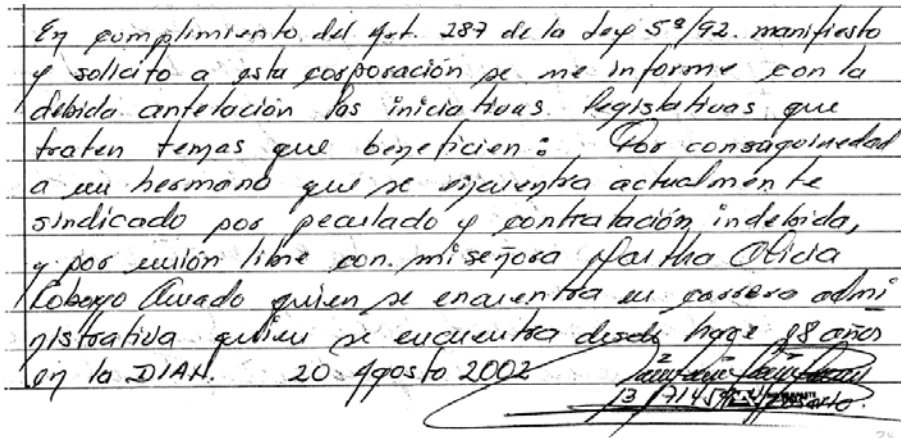 En cumplimiento del Art. 287 de la Ley 5ª/92. manifiesto
y sollicito a esta corporación se me informe con la
debida antelación las iniciativas legislativas que
traten temas que beneficien: Por consaguinedad
a un hermano que se encuentra actualmente
sindicado por peculado y contratación indebida,
y por unión libre con mi señora Martha Alicia
quien se encuentra en carrera admi
nistrativa quien se encuentra desde hace 18 años
en la DIAN. 20 Agosto 2002